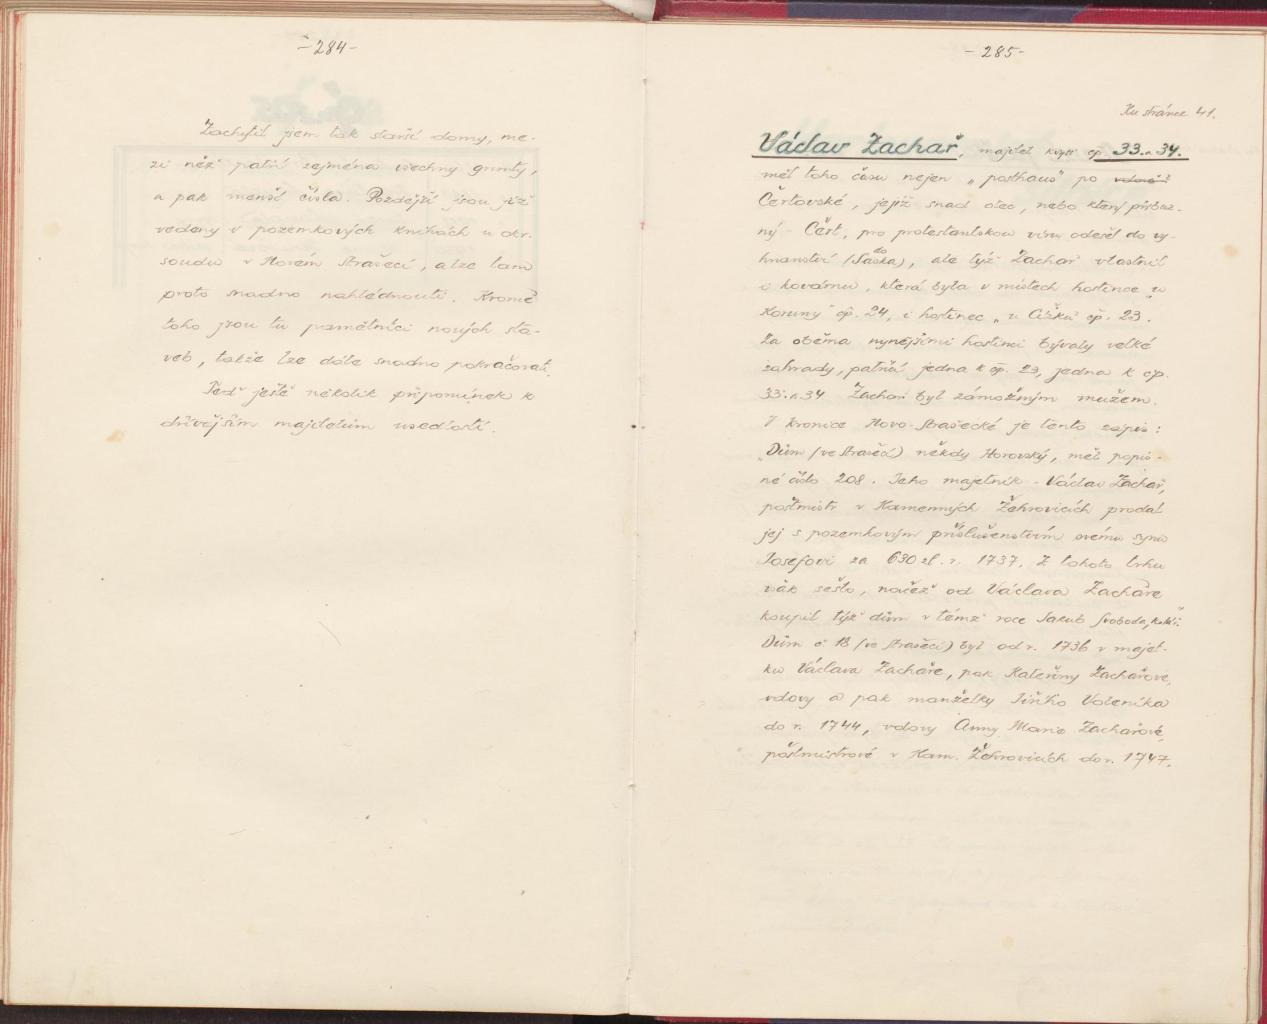 -284-
Zachytil jsem tak starší domy, me-
zi něž patří zejména všechny grunty,
a pak menší čísla. Pozdější jsou již
vedeny v pozemkových knihách u okr.
soudu v Novém Strašecí, a lze tam
proto snadno nahlédnouti. Kromě
toho jsou tu pamětníci nových sta-
veb, takže lze dále snadno pokračovati.
Teď ještě několik připomínek k
dřívějším majitelům usedlostí.
-285-
Ku stránce 41.
Václav Zachař, majitel čp. 33. a 34.
měl toho času nejen „posthaus" po vdově
Čertovské, jejíž snad otec, nebo který příbuz-
ný - Čert, pro protestantskou víru odešel do vy-
hnanství (do Saska), ale týž Zachař vlastnil
i kovárnu, která byla v místech hostince „u
Koruny" čp. 24, i hostinec „u Čížků" čp. 23.
Za oběma nynějšími hostinci bývaly velké
zahrady, patřící jedna k čp. 23, jedna k čp.
33. a 34 Zachař byl zámožným mužem.
V kronice Novo-Strašecké je tento zápis:
„Dům (ve Strašecí) někdy Horovský, měl popis-
né číslo 208. Jeho majetník - Václav Zachař,
poštmistr v Kamenných Žehrovicích prodal
jej s pozemkovým příslušenstvím svému synu
Josefovi za 630 zl. r. 1737. Z tohoto trhu
však sešlo, načež od Václava Zachaře
koupil týž dům v témž roce Jakub Svoboda,
Dům č 18 (ve Strašecí) byl od r. 1736 v majet-
ku Václava Zachaře, pak Kateřiny Zachařové,
vdovy a pak manželky Jiřího Voleníka
do r. 1744, vdovy Anny Marie Zachařové,
poštmistrové v Kam. Žehrovicích do r. 1747.